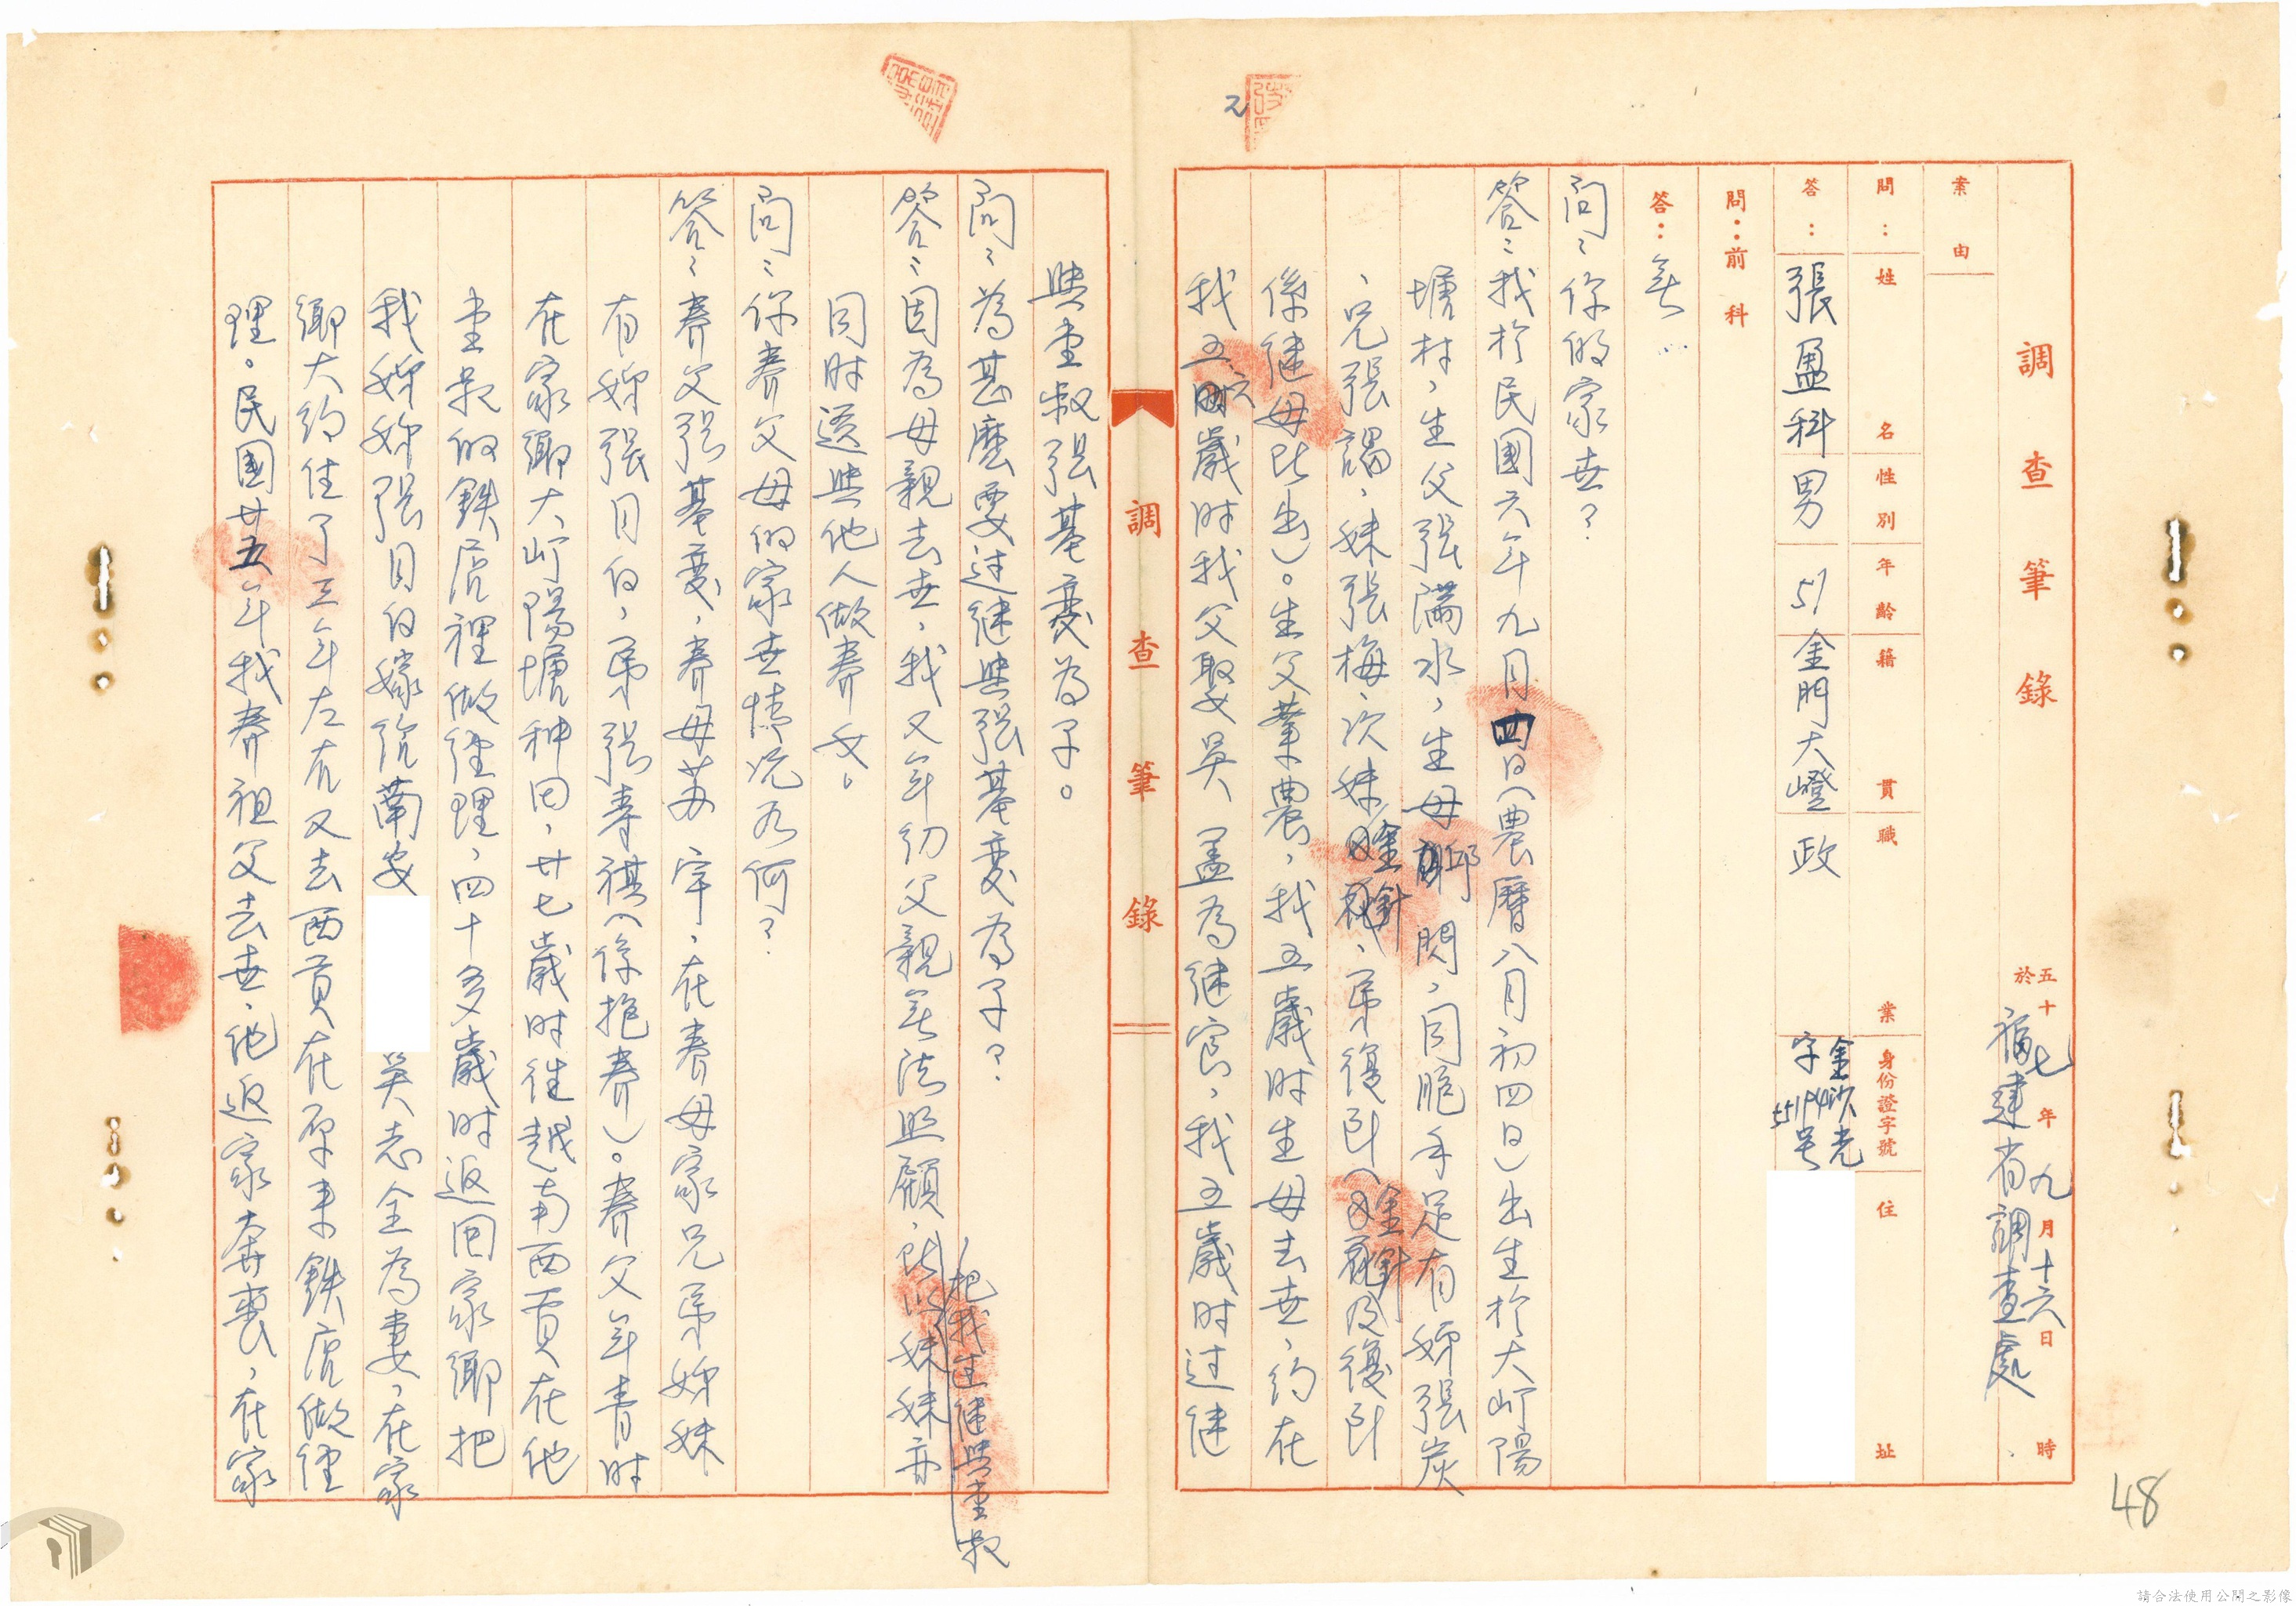 調查筆錄
五十七年九月十六日 時
於福建省調查處
案由
問：姓名 性別 年齡 籍貫 職業 身份證字號 住址
答：張盈科 男 51 金門大嶝 政 金沙光字 号
問：前科
答：无
問：你的家世？
答：我於民國六年九月四日（農曆八月初四日）出生於大嶝陽
塘村，生父張滿水，生母邱 閃，同胞手足有姊張炭
、兄張謁，妹張梅，次妹 金針，弟復 （金針及復
係继母所出）。生父業農，我五歲时生母去世，约在
我五、六歲时我父娶吳 孟為继室，我五歲时过继
與堂叔張基变為子。
問：為甚麼要过继與張基变為子？
答：因為母親去世，我又年幼父親无法照顧，所以把我过继與堂叔妹妹亦
同时送與他人做养女。
問：你养父母的家世情况为何？
答：养父張基变，养母苏 宇，在养母家兄弟姊妹
有姊張月白，弟張孝祺（係抱养）。养父年青时
在家鄉大嶝陽塘种田，廿七歲时往越南西贡在他
堂叔的鉄店裡做经理，四十多歲时返回家鄉把
我姊姊張月白嫁给南安 吳志全為妻，在家
鄉大约住了三年左右又去西貢在原来鉄店做经
理。民國廿五年我养祖父去世，他返家奔喪，在家
調查筆錄
48
請合法使用公開之影像